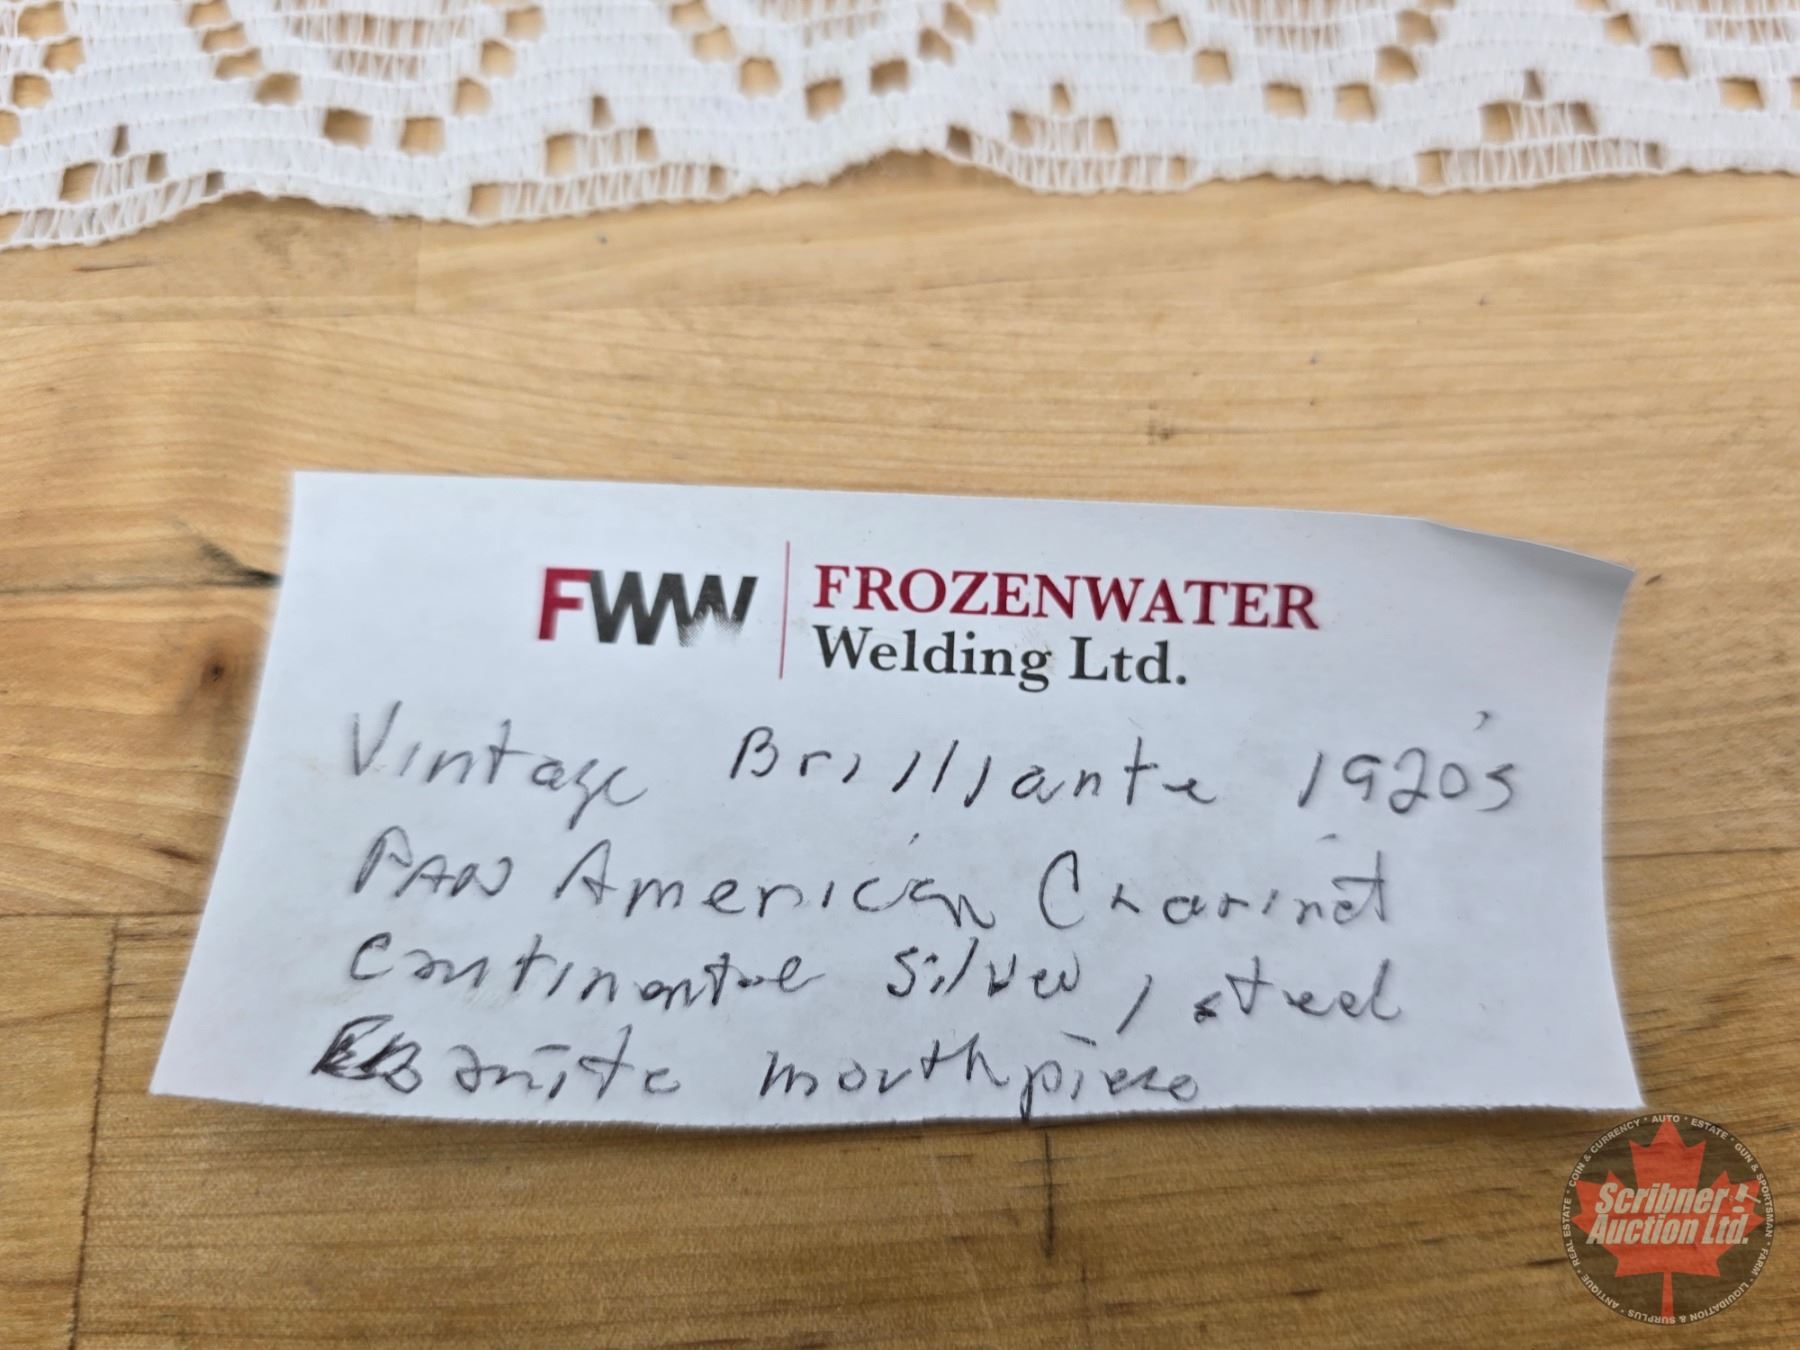 FWW
FROZENWATER
Welding Ltd.
Vintage Brilliante 1920's
PAN American Clarinet
Continental silver, steel
Ebonite mouthpiece
COIN & CURRENCY • AUTO • ESTATE • GUN & SPORTSMAN • FARM • LIQUIDATION & SURPLUS • ANTIQUE • REAL ESTATE
Scribner
Auction Ltd.